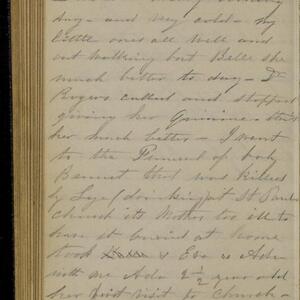 day - and very cold - My
little ones all well and
out walking but Belle she
much better to day - Dr
Rogers called and stopped
giving her Quinine - thinks
her much better - I went
to the Funeral of baby
Bennet that was killed
by Lye (drinking) at St Pauls
Church its Mother too ill to
have it buried at home
took & Eva & Ada
with me Ada 2 1/2 years old
her first visit to Church -